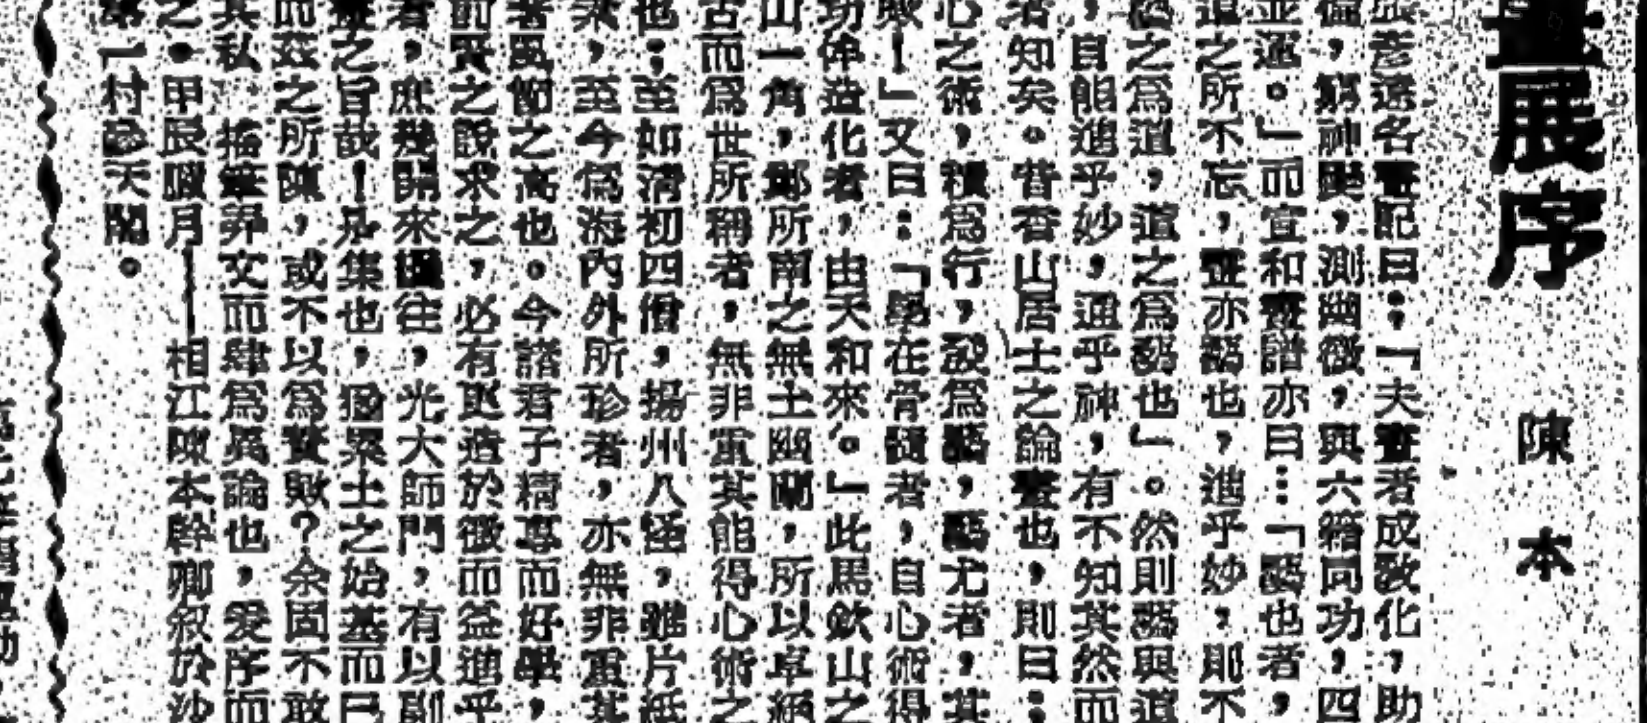 畫展序
陳本
張彥遠名畫記曰：「夫畫者成教化，助
倫，窮神變，測幽微，與六籍同功，四
並運。」而宣和畫譜亦曰…「藝也者，
道之所不忘，畫亦藝也，進乎妙，則不
藝之為道，道之為藝也」。然則藝與道
，自能進乎妙，通乎神，有不知其然而
者知矣。昔香山居士之論畫也，則曰：
心之術，積為行，設為藝，藝尤者，其
歟！」又曰：「學在骨髓者，自心術得
功侔造化者，由天和來。」此馬欽山之
山一角，鄭所南之無土幽蘭，所以卓絕
古而為世所稱者，無非重其能得心術之
也；至如清初四僧，揚州八怪，雖片紙
，至今為海內外所珍者，亦無非重其
者風節之高也。今諸君子精專而好學，
前賢之說求之，必有更造於微而益進乎
者，庶幾開來繼往，光大師門，有以副
之旨哉！是集也，猶累土之始基而已
而茲之所陳，或不以為贅歟？余固不敢
其私，搖筆弄文而肆為異論也，爰序而
之。甲辰臘月——相江陳本幹卿叙於沙
第一村參天閣。